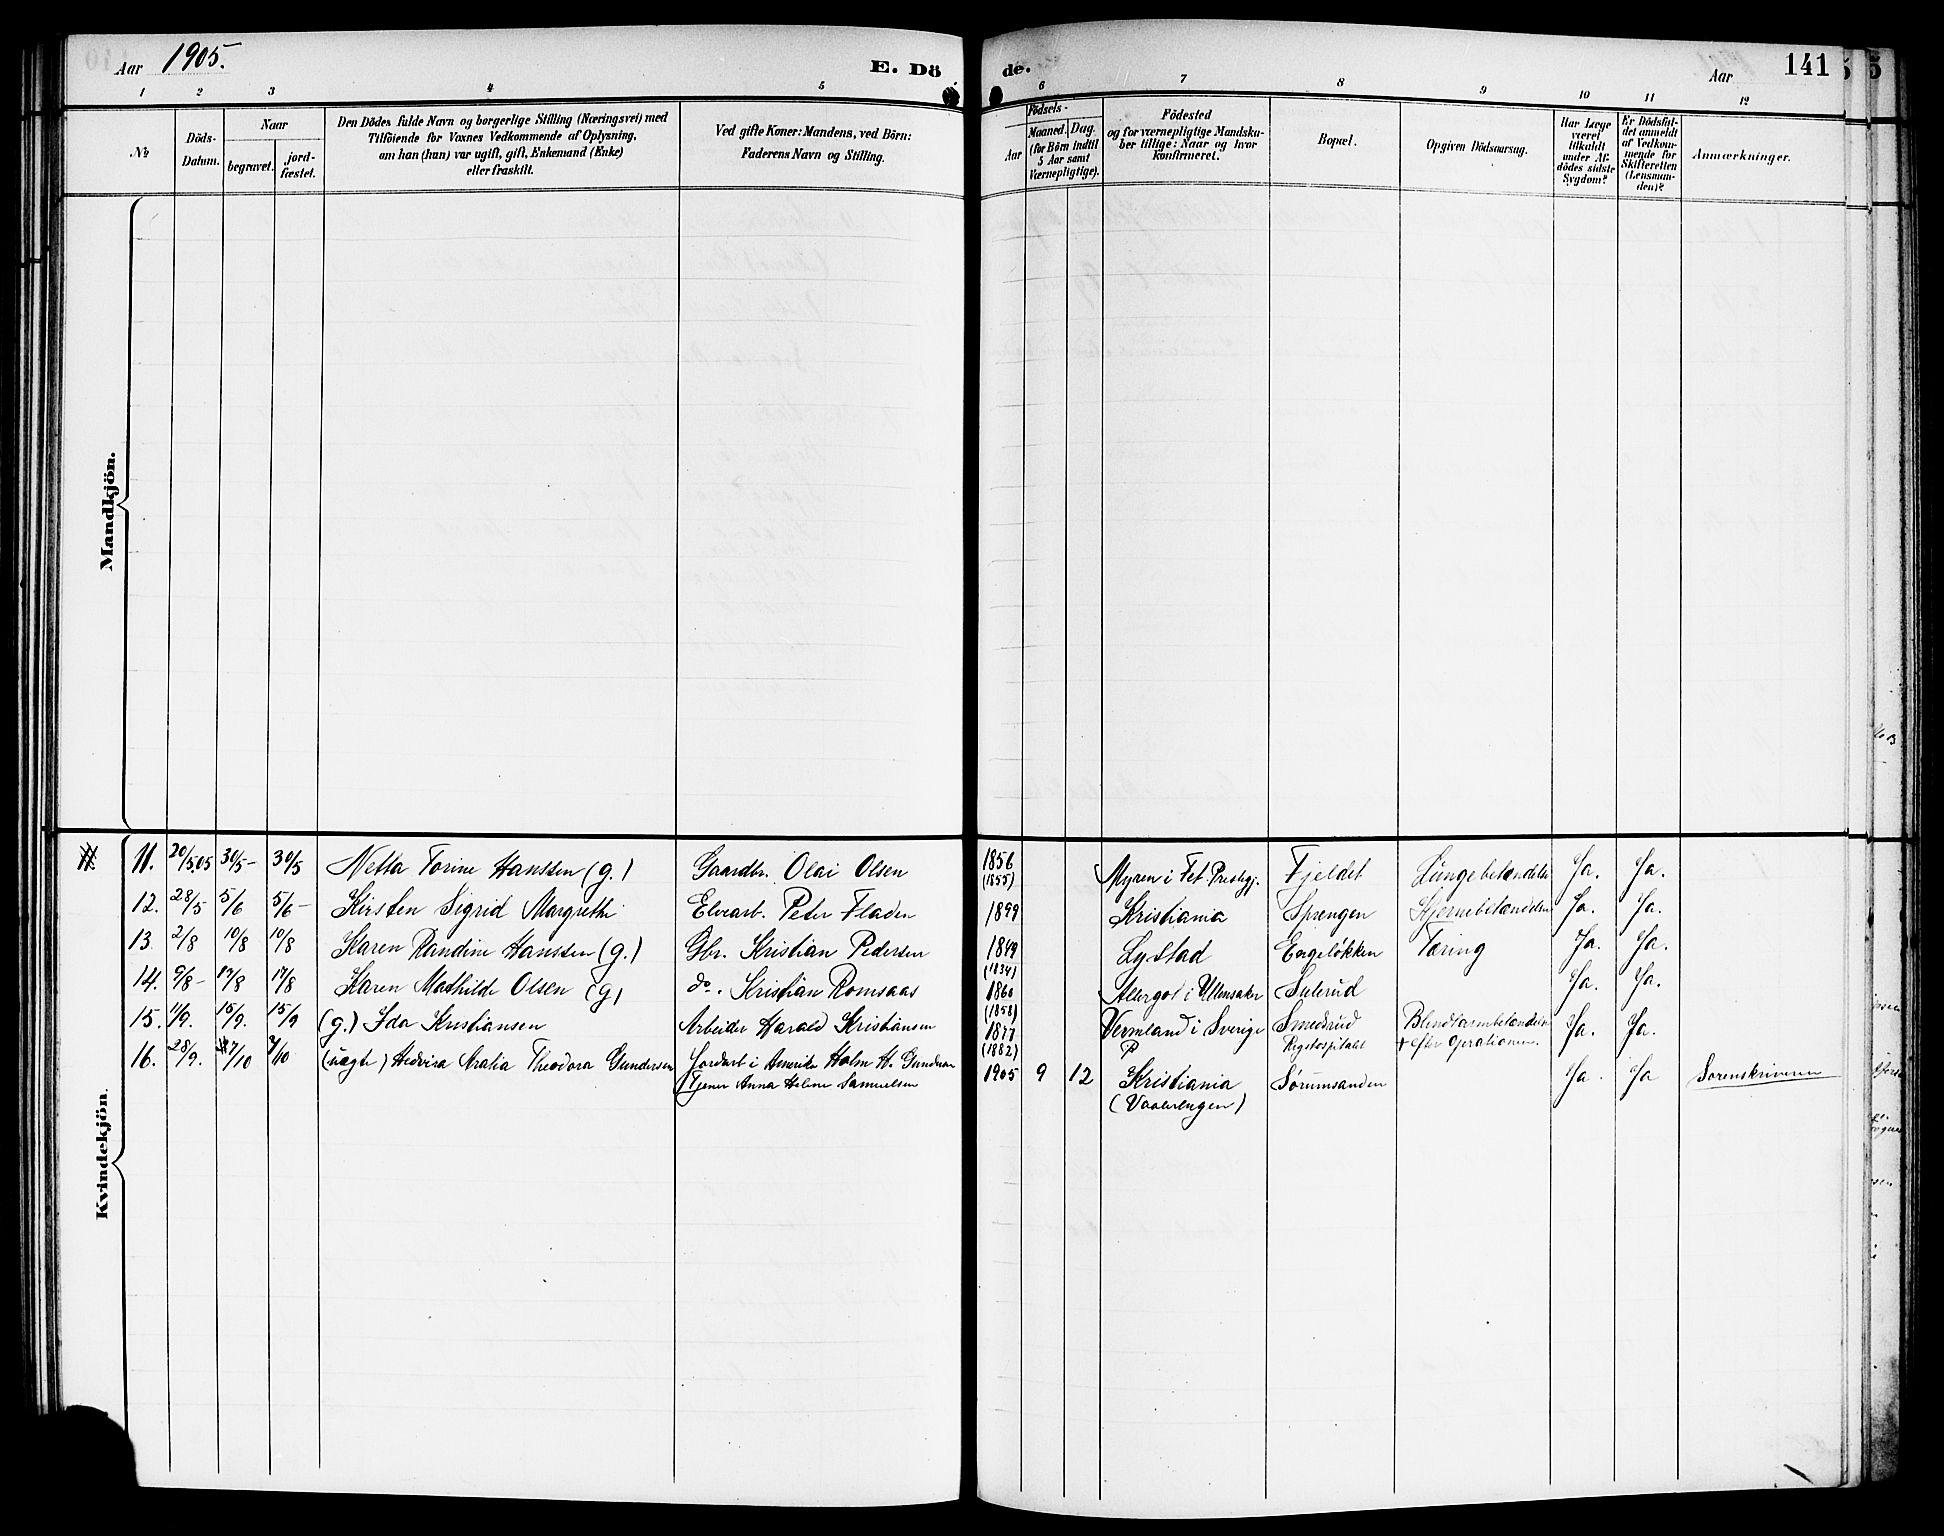 Aar 1905. E. Dö de. Aar 141
1 2 3 4 5 6 7 8 9 10 11 12
№
Döds-
Datum.
Naar
begravet.
jord-
fæstet.
Den Dödes fulde Navn og borgerlige Stilling (Næringsvei) med
Tilföiende for Voxnes Vedkommende af Oplysning,
om han (hun) var ugift, gift, Enkemand (Enke)
eller fraskilt.
Ved gifte Koner: Mandens, ved Börn:
Faderens Navn og Stilling.
Födsels-
Aar
Maaned. Dag.
(for Börn indtil
5 Aar samt
Værnepligtige).
Födested
og for værnepligtige Mandska-
ber tillige: Naar og hvor
konfirmeret.
Bopæl.
Opgiven Dödsaarsag.
Har Læge
været
tilkaldt
under Af-
dödes sidste
Sygdom?
Er Dödsfal-
det anmeldt
af Vedkom-
mende for
Skifteretten
(Lensman-
den)?
Anmærkninger.
Mandkjön.
Kvindekjön.
11. 20/5.05 30/5- 30/5 Netta Torine Hanssen (g.) Gaardbr. Olai Olsen 1856 (1855) Myren i Fet Prestgj. Fjeldet Lungebetændelse Ja. Ja.
12. 28/5 5/6 5/6- Kirsten Sigrid Margrethe Elvearb. Peter Fladen 1899 Kristiania Sprengen Hjernebetændelse Ja. Ja.
13. 2/8 10/8 10/8 Karen Randine Hanssen (g.) Gbr. Kristian Pedersen 1849 (1834) Lystad Engeløkken Tæring Ja. Ja.
14. 9/8- 17/8 17/8 Karen Mathilde Olsen (g) do. Kristian Romsaas 1860 (1858) Algergot i Ullensaker Sulerud Ja. Ja.
15. 11/9. 15/9. 15/9 (g.) Ida Kristiansen Arbeider Harald Kristiansen 1877 (1882) Vermland i Sverige Smedsrud Blindtarmbetændelse Ja. Ja.
P Rigshospitalet + efter Operationen.
16. 28/9. 7/10 7/10 (uægte) Hedvira Aralia Theodora Gundersen Jordarb. i Amerika Holm H. Gundersen 1905 9 12 Kristiania Sørumsanden Ja. Ja Sorenskriveren
Tjener Anna Helene Samuelsen (Vaalerengen)